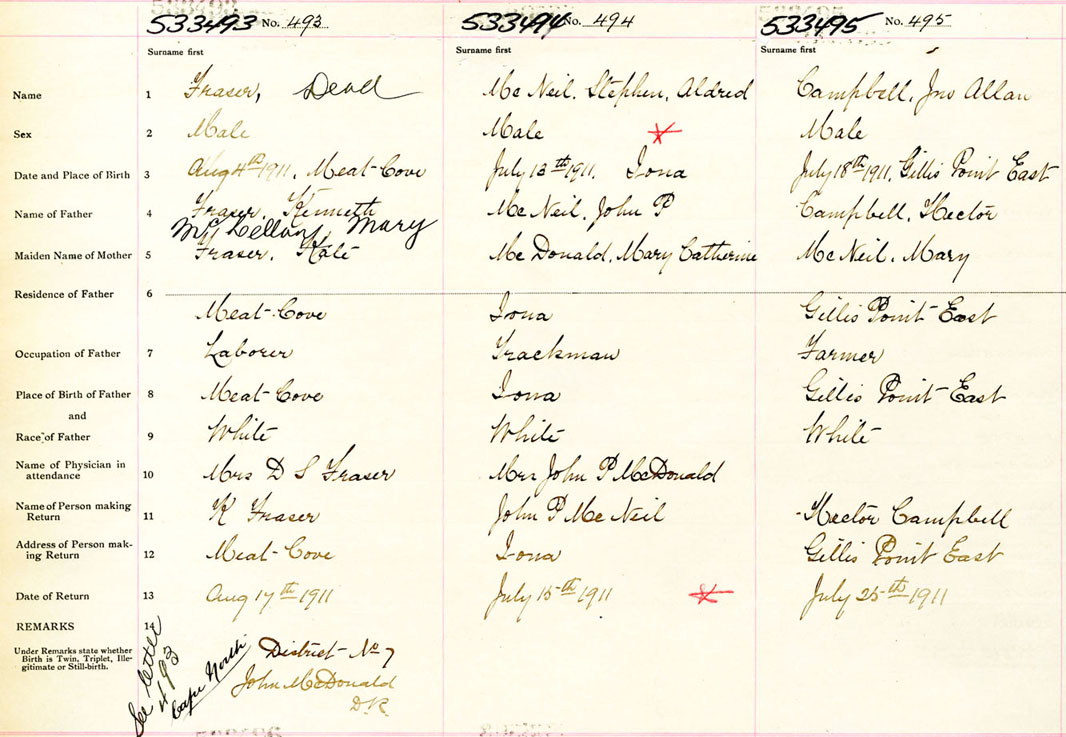 533493 No. 493 533494 No. 494 533495 No. 495
Surname first Surname first Surname first
Name 1 Fraser, Dead McNeil, Stephen, Aldred Campbell, Jno Allan
Sex 2 Male Male Male
Date and Place of Birth 3 Aug 4th 1911, Meat-Cove July 13th 1911, Iona July 18th 1911, Gillis Point East
Name of Father 4 Fraser, Kenneth McNeil, John P Campbell, Hector
McLellan, Mary
Maiden Name of Mother 5 Fraser, Kate McDonald, Mary Catherine McNeil, Mary
Residence of Father 6
Meat-Cove Iona Gillis Point East
Occupation of Father 7 Laborer Trackman Farmer
Place of Birth of Father 8 Meat-Cove Iona Gillis Point East
and
Race of Father 9 White White White
Name of Physician in
attendance 10 Mrs D S Fraser Mrs John P McDonald
Name of Person making
Return 11 K Fraser John P McNeil Hector Campbell
Address of Person mak-
ing Return 12 Meat-Cove Iona Gillis Point East
Date of Return 13 Aug 17th 1911 July 15th 1911 July 25th 1911
REMARKS 14
Under Remarks state whether
Birth is Twin, Triplet, Ille-
gitimate or Still-birth.
See letter
493
Cape North
District No 7
John McDonald
D.R.